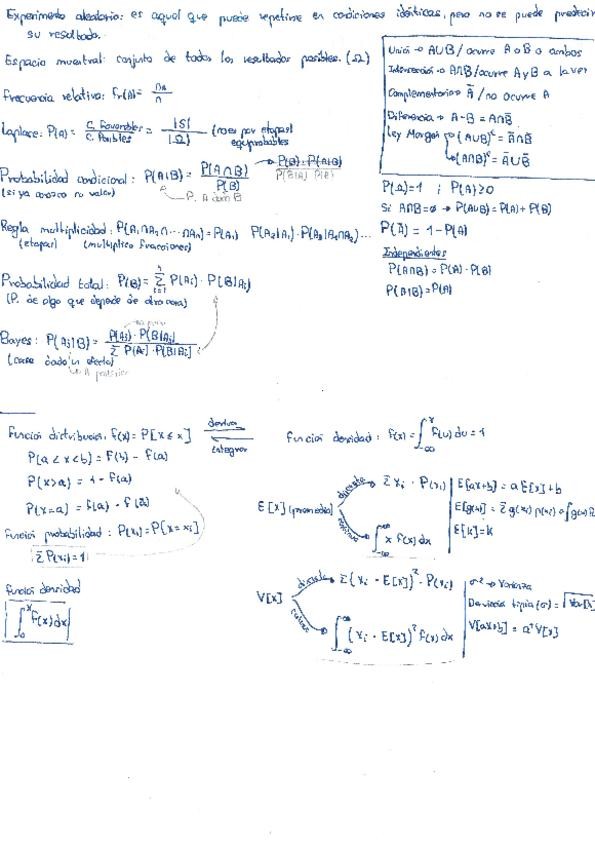 Experimento aleatorio: es aquel que puede repetirse en condiciones idénticas, pero no se puede predecir
su resultado.
Espacio muestral: conjunto de todos los resultados posibles. (Ω)
Frecuencia relativa: fr(A) = nA/n
Laplace: P(A) = C. Favorables / C. Posibles = |S| / |Ω| (no es por etapas) equiprobables
Probabilidad condicional: P(A|B) = P(A∩B) / P(B) → P(B)·P(A|B)
P(B|A) P(A)
(si ya conozco un valor)
P. A dado B
Regla multiplicidad: P(A₁∩A₂∩...∩Aₙ) = P(A₁) P(A₂|A₁)·P(A₃|A₁∩A₂)...
(etapas) (multiplico fracciones)
Probabilidad total: P(B) = Σ P(Aᵢ)·P(B|Aᵢ)
(P. de algo que depende de otra cosa)
Bayes: P(Aᵢ|B) = P(Aᵢ)·P(B|Aᵢ) / Σ P(Aᵢ)·P(B|Aᵢ)
(causa dado un efecto)
A posteriori
Unión → A∪B / ocurre A o B o ambos
Intersección → A∩B / ocurre A y B a la vez
Complementario → Ā / no ocurre A
Diferencia → A-B = A∩B̄
Ley Morgan → (A∪B)ᶜ = Ā∩B̄
→ (A∩B)ᶜ = Ā∪B̄
P(Ω)=1 ; P(A)≥0
Si A∩B=∅ → P(A∪B) = P(A)+P(B)
P(Ā) = 1-P(A)
Independientes
P(A∩B) = P(A)·P(B)
P(A|B) = P(A)
Función distribución: F(x) = P[X≤x]
derivar
integrar
P(a<x<b) = F(b) - F(a)
P(x>a) = 1 - F(a)
P(x=a) = F(a) - F(a⁻)
Función probabilidad: P(xᵢ) = P[X=xᵢ]
Σ P(xᵢ) = 1
Función densidad
∫₀ˣ f(x)dx
Función densidad: f(x) = ∫ f(u)du = 1
E[x] (promedio)
discreta Σ xᵢ · P(xᵢ)
continua ∫ x f(x)dx
E[ax+b] = a E[x]+b
E[g(x)] = Σ g(xᵢ) p(xᵢ) o ∫ g(x)
E[k] = k
V[x]
discreta Σ(xᵢ - E[x])² · P(xᵢ)
continua ∫ (xᵢ - E[x])² f(x)dx
σ² → Varianza
Desviación típica (σ) = √Var[x]
V[ax+b] = a² V[x]